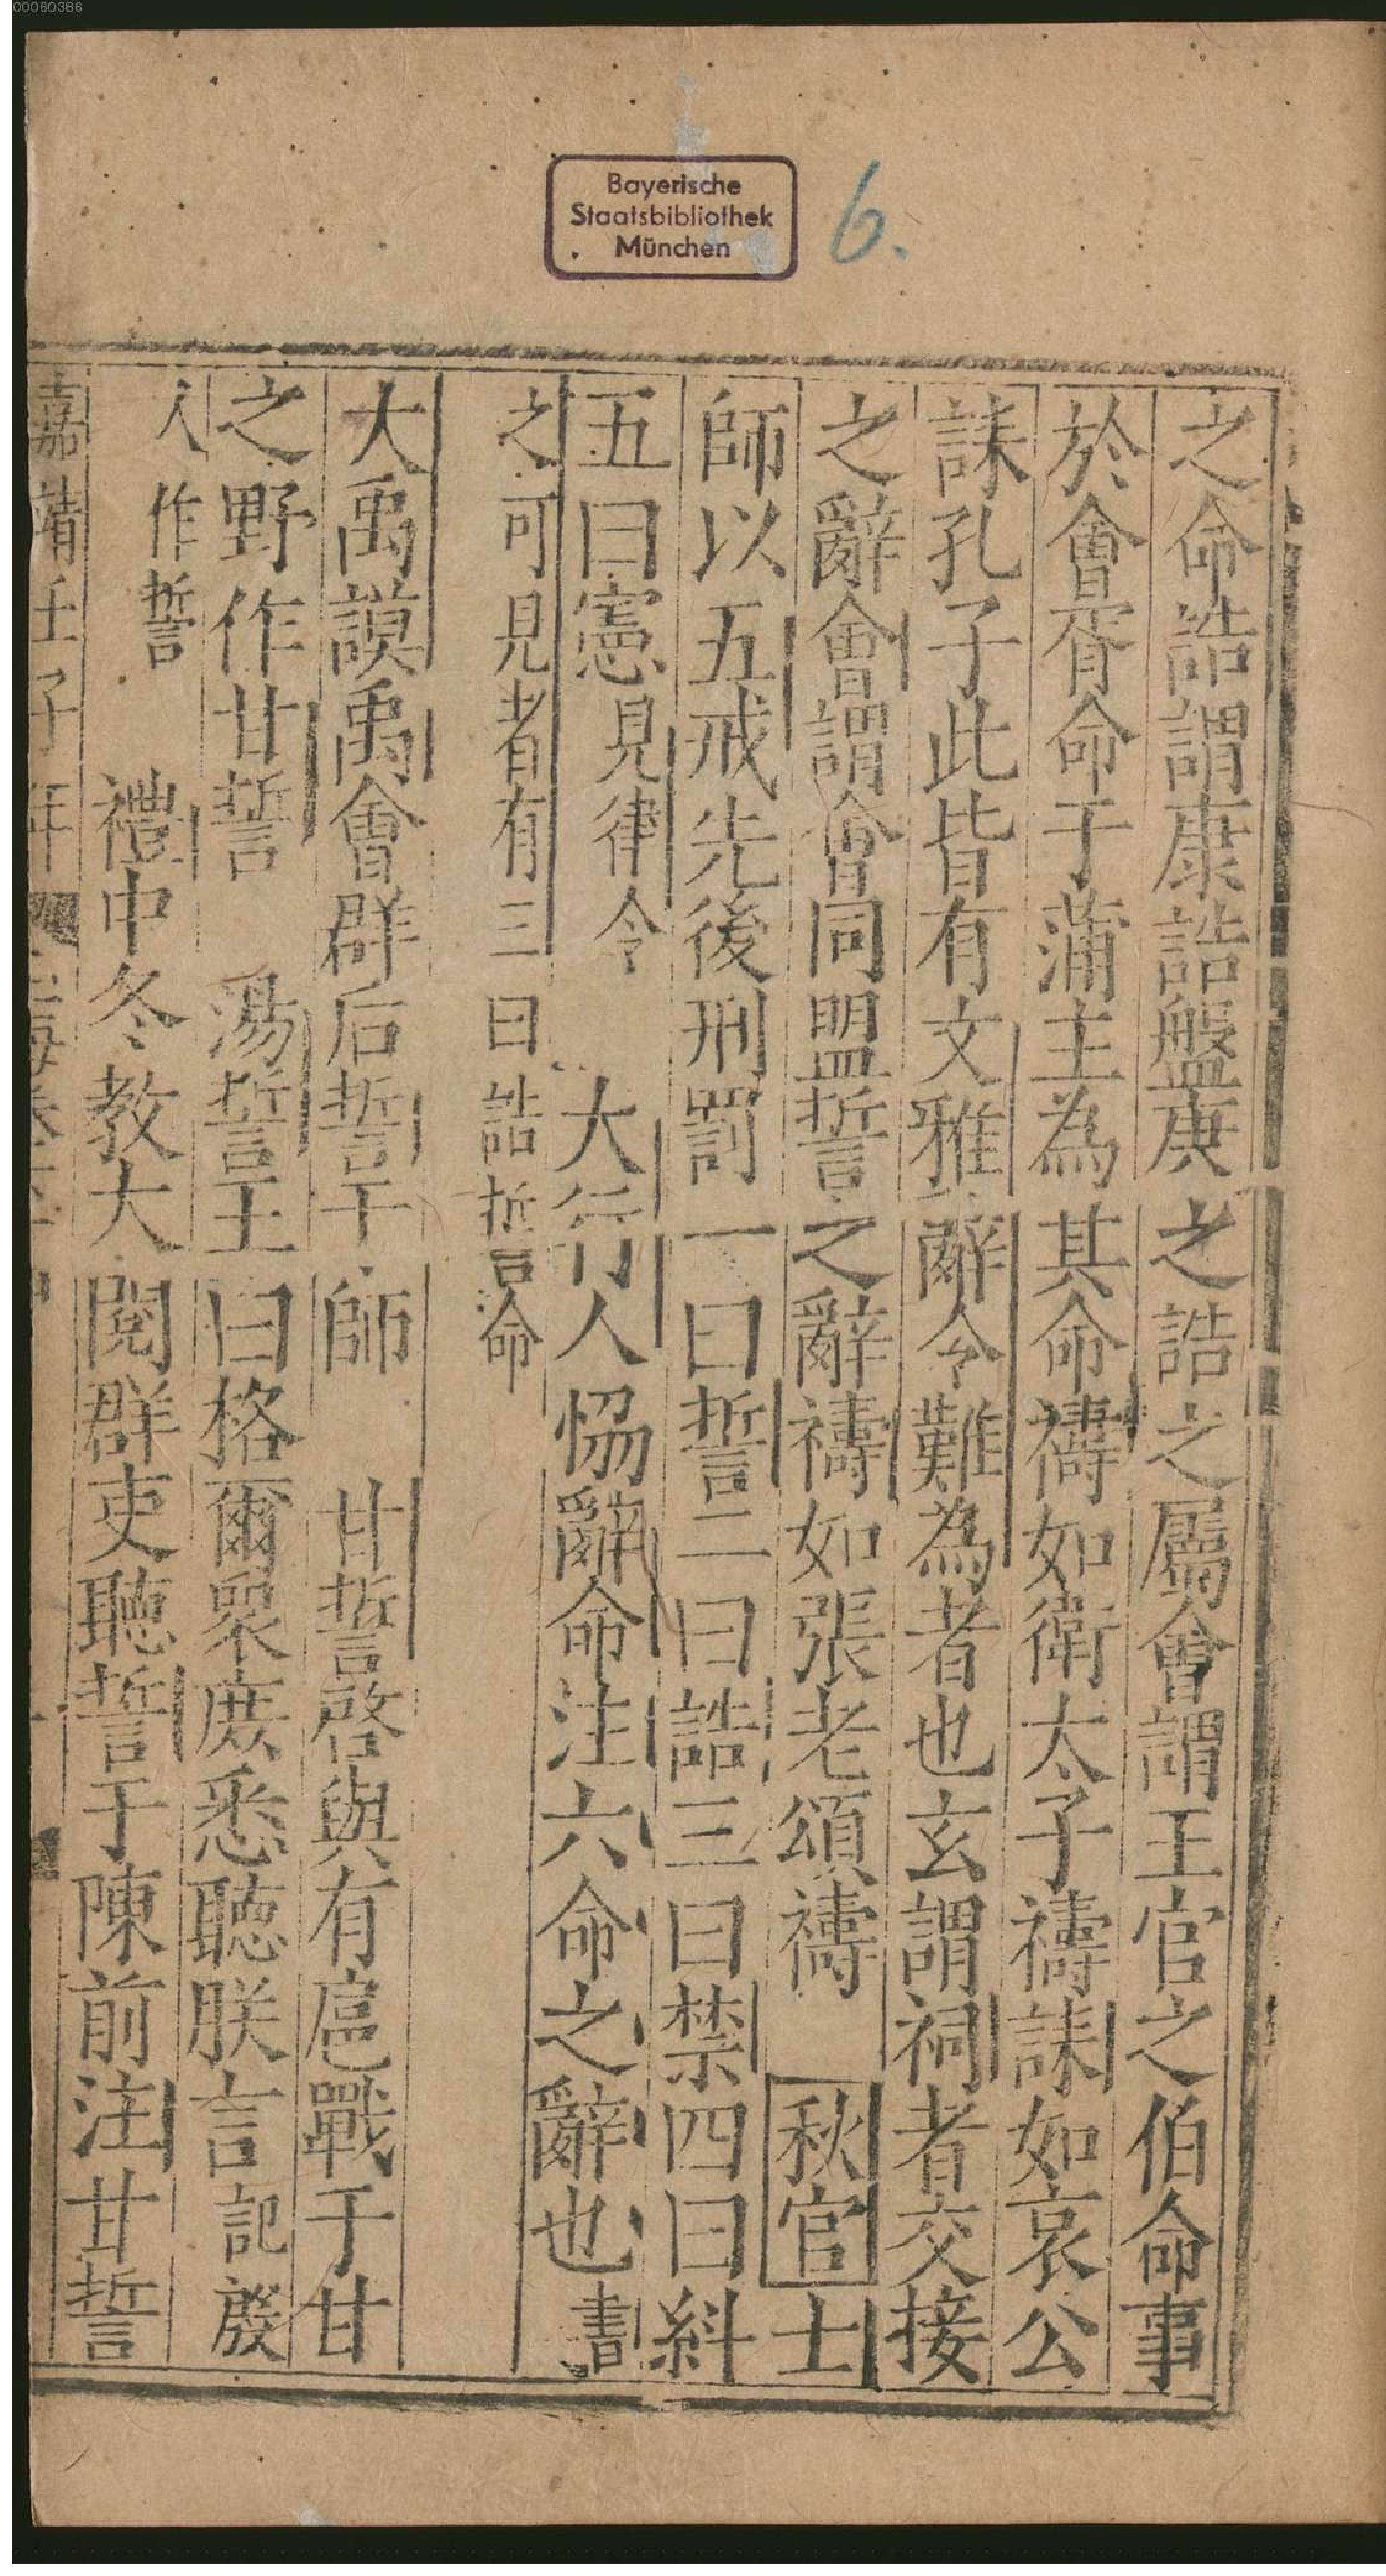 00060386
Bayerische
Staatsbibliothek
München
6.
之命誥謂康誥盤庚之誥之屬會謂王官之伯命事
於會胥命于蒲主為其命禱如衛太子禱誄如哀公
誄孔子此皆有文雅辭令難為者也玄謂祠者交接
之辭會謂會同盟誓之辭禱如張老頌禱 秋官士
師以五戒先後刑罰一曰誓二曰誥三曰禁四曰糾
五曰憲見律令 大行人恊辭命注六命之辭也書
之可見者有三曰誥誓命
大禹謨禹會群后誓于師 甘誓啓與有扈戰于甘
之野作甘誓 湯誓王曰格爾眾庻悉聽朕言記殷
人作誓 禮中冬教大閱群吏聽誓于陳前注甘誓
嘉靖壬子年